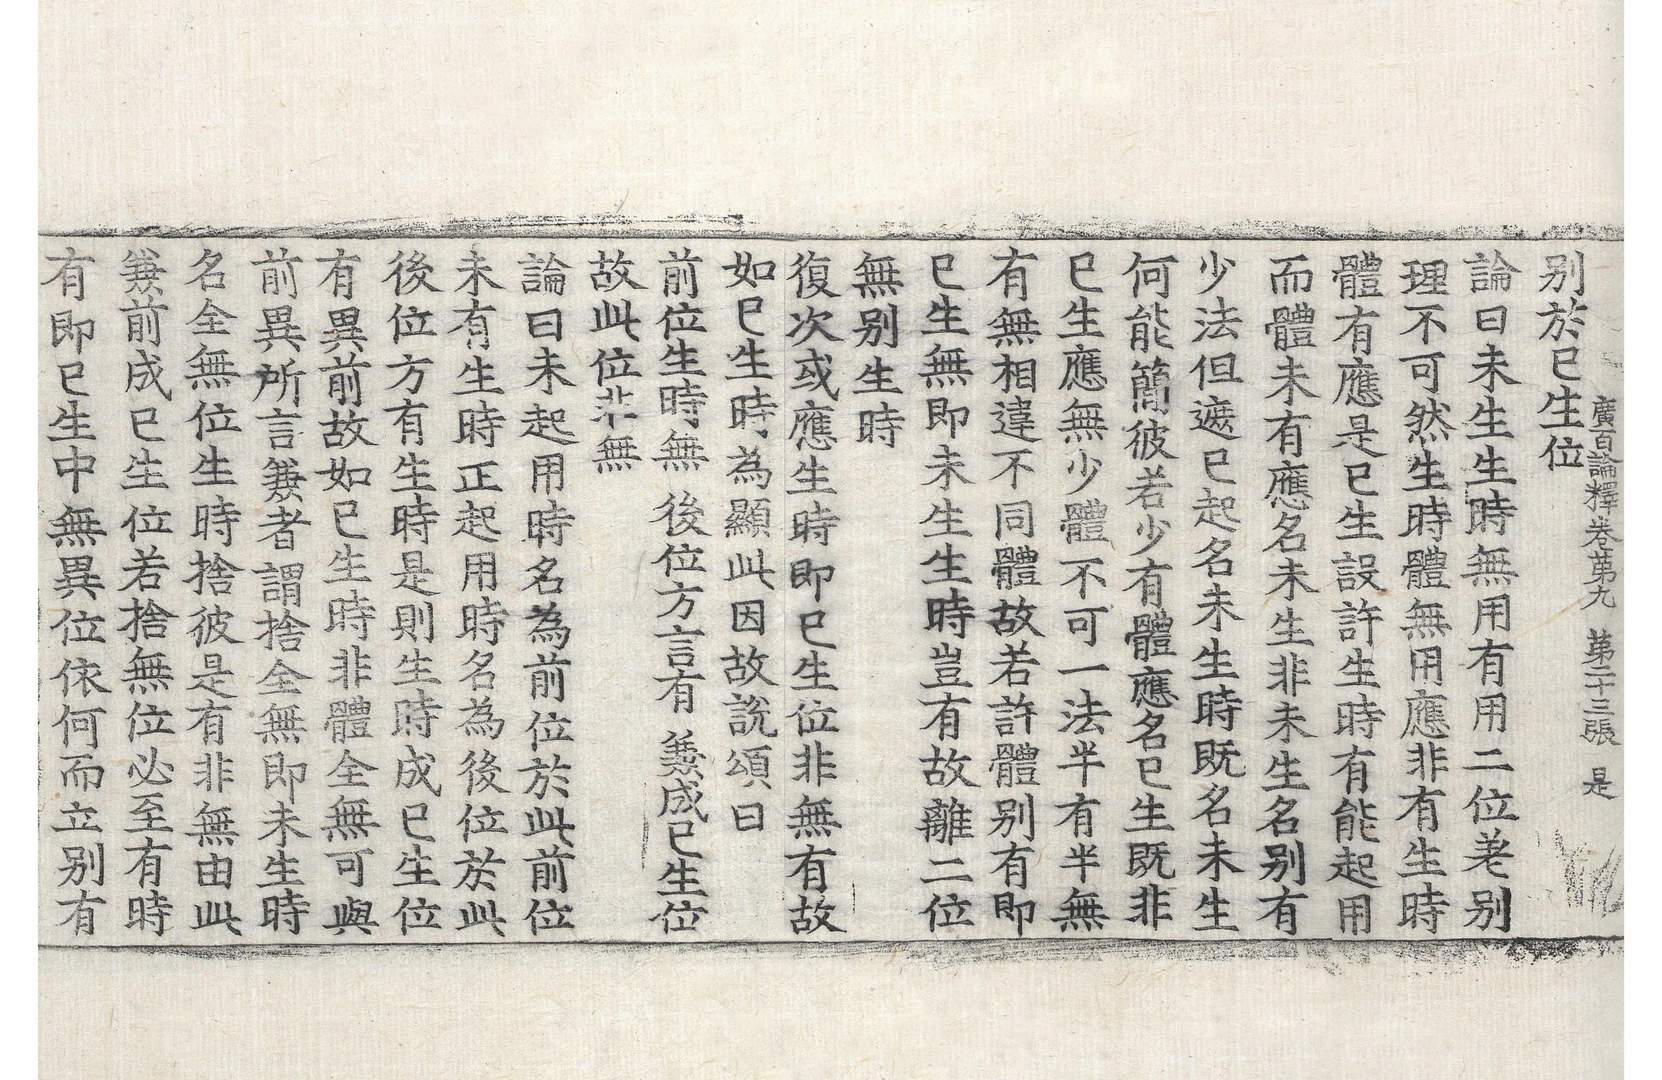 廣百論釋卷第九　第二十三張　是
别於已生位
論曰未生生時無用有用二位差别
理不可然生時體無用應非有生時
體有應是已生設許生時有能起用
而體未有應名未生非未生名别有
少法但遮已起名未生時既名未生
何能簡彼若少有體應名已生既非
已生應無少體不可一法半有半無
有無相違不同體故若許體别有即
已生無即未生生時豈有故離二位
無别生時
復次或應生時即已生位非無有故
如已生時為顯此因故說頌曰
前位生時無　後位方言有　兼成已生位
故此位非無
論曰未起用時名為前位於此前位
未有生時正起用時名為後位於此
後位方有生時是則生時成已生位
有異前故如已生時非體全無可與
前異所言兼者謂捨全無即未生時
名全無位生時捨彼是有非無由此
兼前成已生位若捨無位必至有時
有即已生中無異位依何而立别有